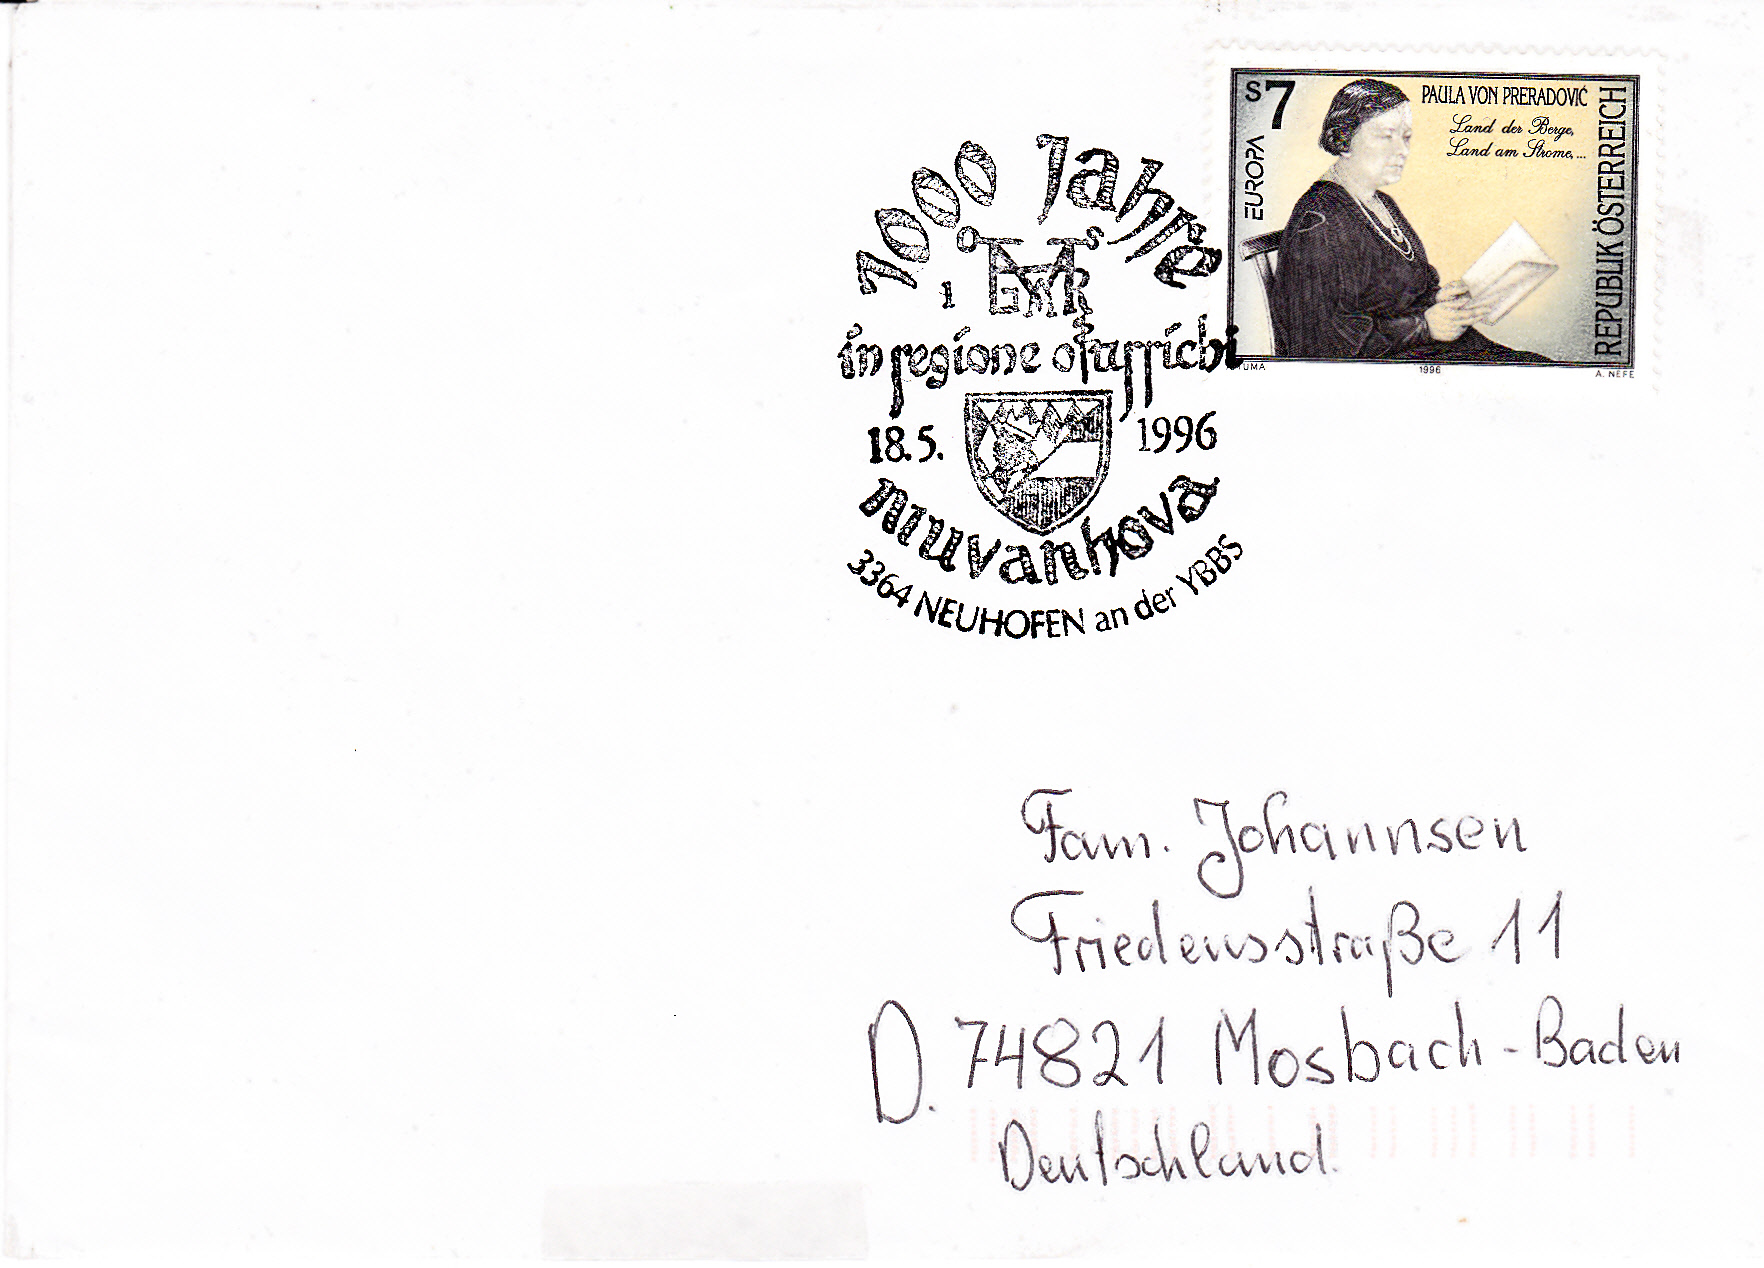 S7
EUROPA
PAULA VON PRERADOVIĆ
Land der Berge,
Land am Strome,...
REPUBLIK ÖSTERREICH
TUMA
1996
A. NEFE
1000 Jahre
in regione ostarrichi
18.5. 1996
niuvanhova
3364 NEUHOFEN an der YBBS
Fam. Johannsen
Friedensstraße 11
D. 74821 Mosbach-Baden
Deutschland.